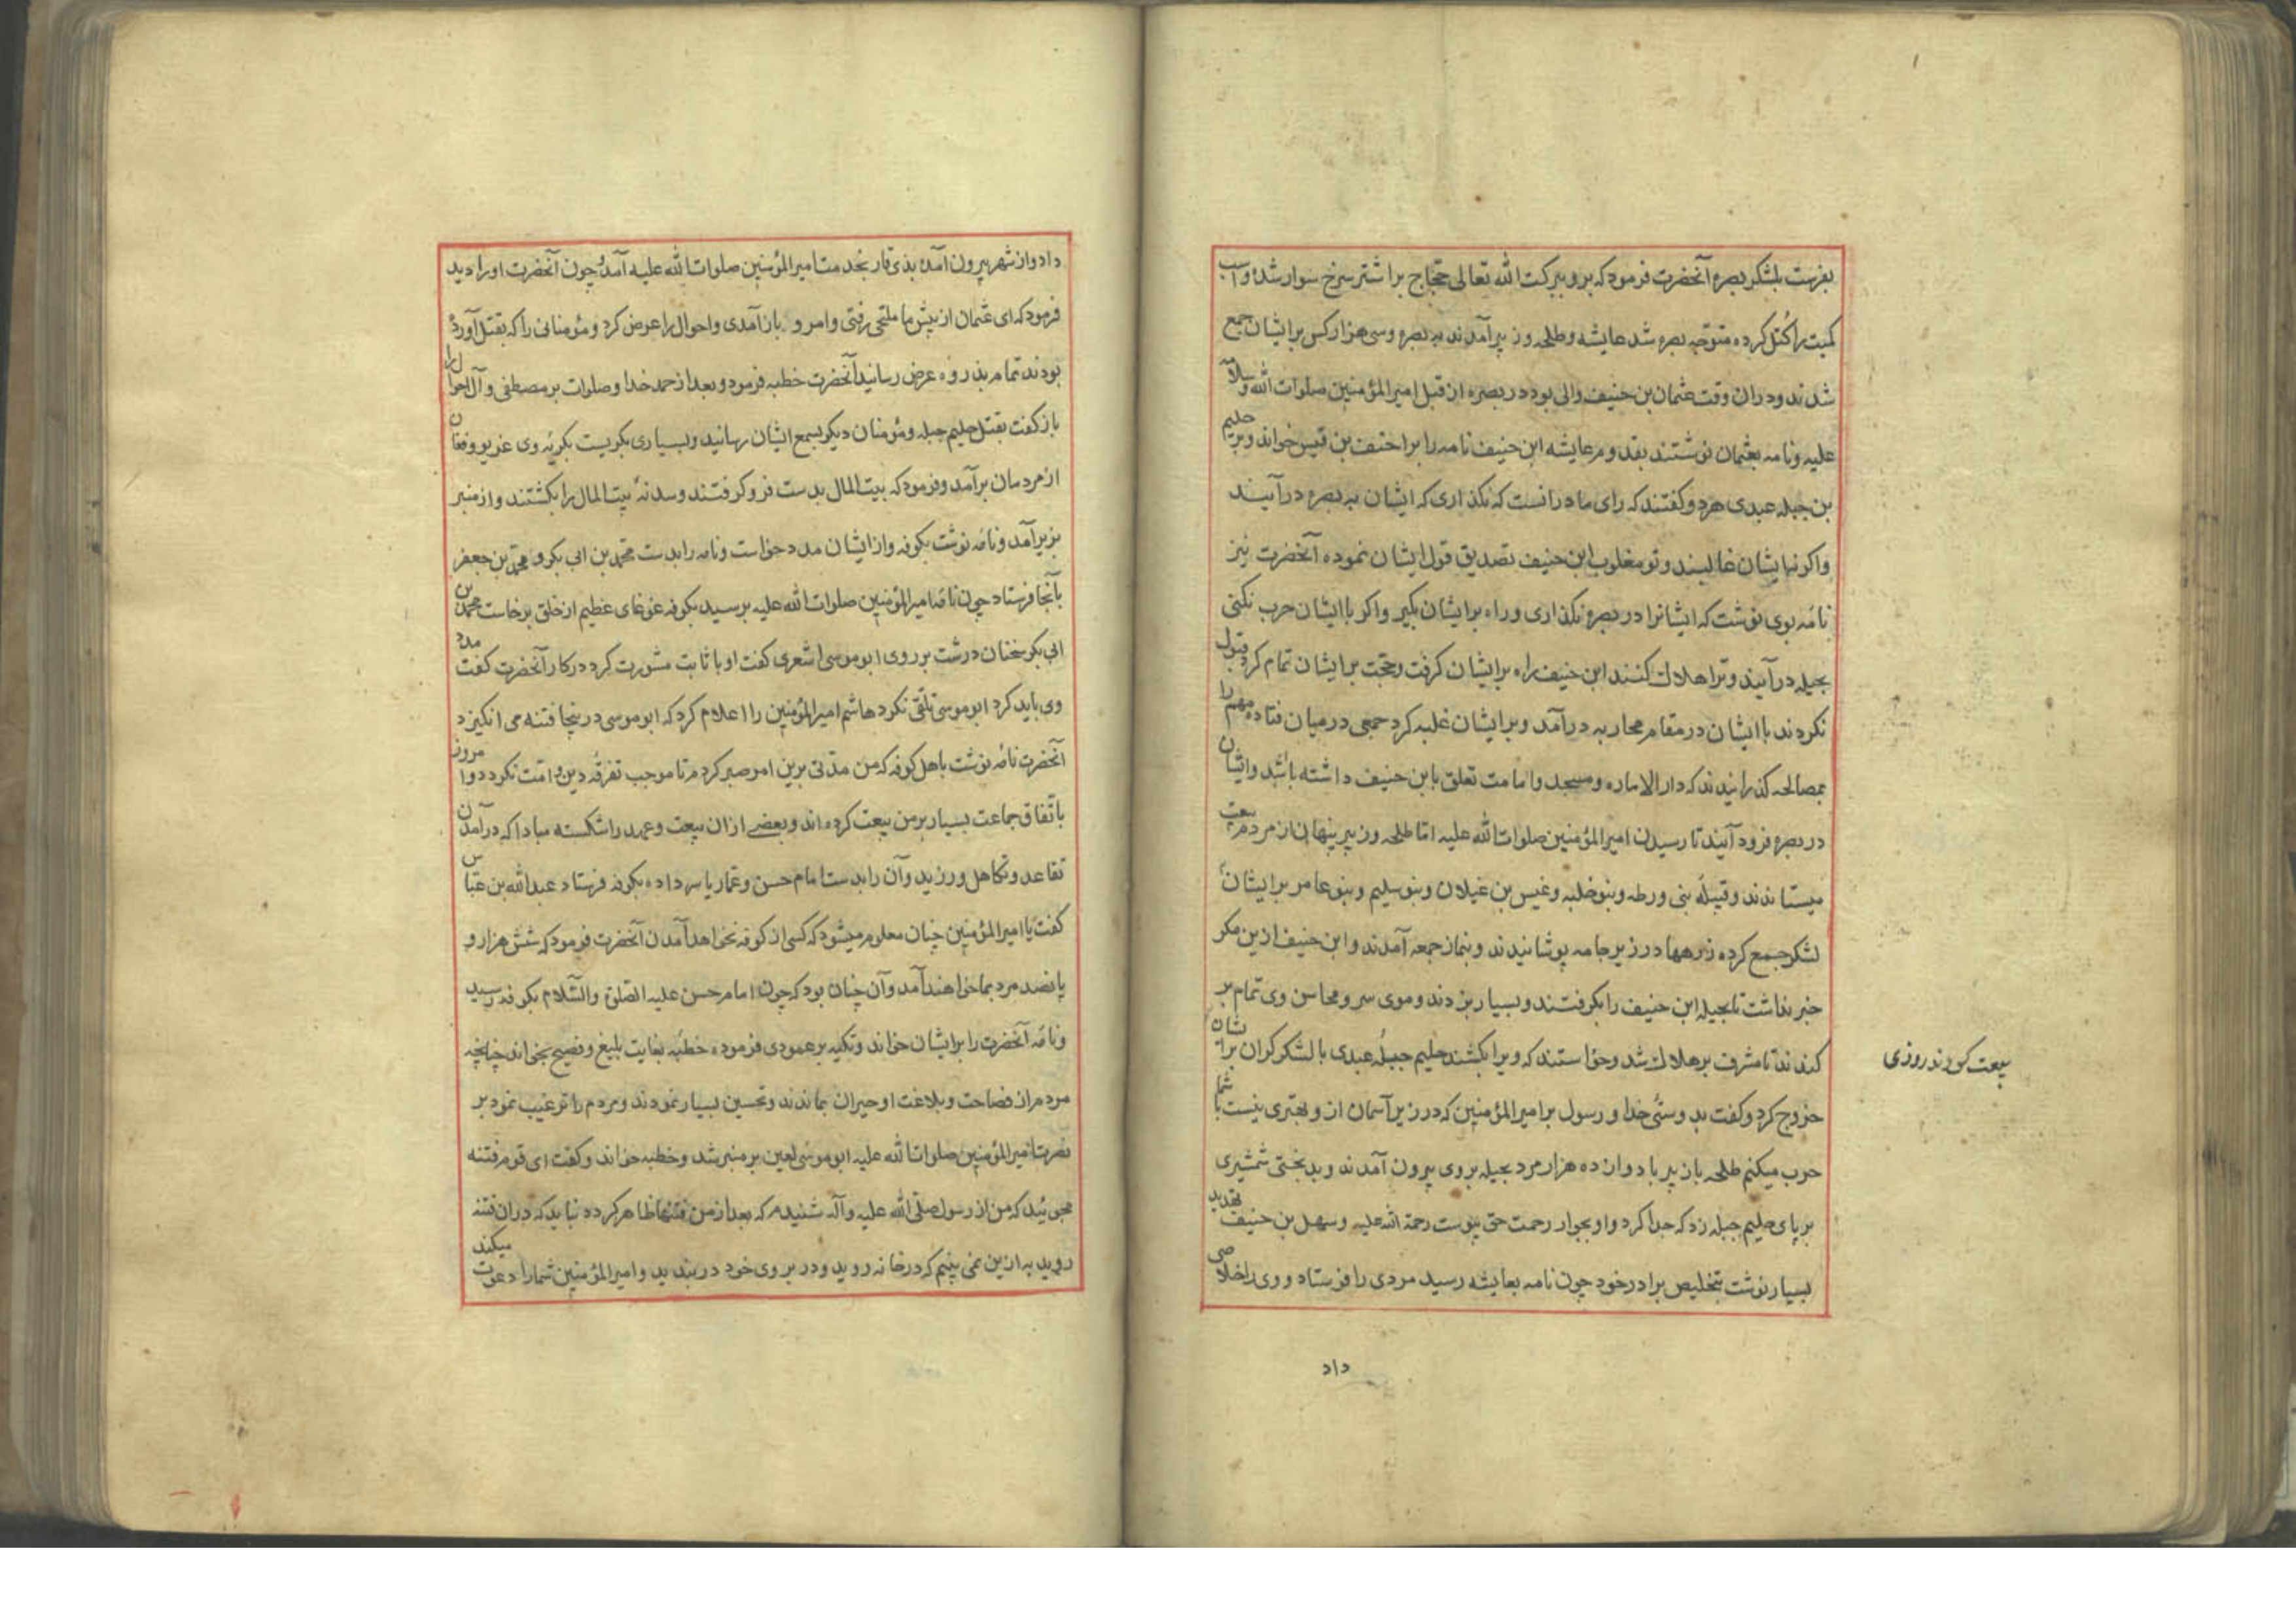 بفرست بلشکر بصره آنحضرت فرمود که برو ببرکت الله تعالی حجاج بر اشتر سرخ سوار شده و اسب
کمیت را کتل کرده متوجه بصره شد عایشه و طلحه و زبیر آمدند به بصره و سی هزار کس بر ایشان جمع
شدند و دران وقت عثمان بن حنیف والی بود در بصره از قبل امیرالمؤمنین صلوات الله و سلامه
علیه و نامه بعثمان نوشتند بقدوم عایشه ابن حنیف نامه را بر احنف بن قیس خواند و بر حلیم
بن جبله عبدی هردو گفتند که رای ما درانست که نگذاری که ایشان به بصره درآیند
واکرنه ایشان غالبند و تو مغلوب ابن حنیف تصدیق قول ایشان نموده آنحضرت نیز
نامه بوی نوشت که ایشانرا در بصره نگذاری و راه بر ایشان بگیر و اکر با ایشان حرب نکنی
بحیله درآیند و ترا هلاك کنند ابن حنیف راه بر ایشان کرفت و حجت بر ایشان تمام کرد قبول
نکردند با ایشان در مقام محاربه درآمد و بر ایشان غلبه کرد جمعی درمیان فتاده مهم را
بمصالحه کذرانیدند که دار الاماره و مسجد و امامت تعلق بابن حنیف داشته باشد و ایشان
در بصره فرود آیند تا رسیدن امیرالمؤمنین صلوات الله علیه اما طلحه و زبیر پنهان از مردم بیعت
میستاندند و قبیله بنی ورطه و بنو خلبه و غیس بن غیلان و بنو سلیم و بنو عامر بر ایشان
لشکر جمع کرده زرهها در زیر جامه پوشانیدند و بنماز جمعه آمدند و ابن حنیف ازین مکر
خبر نداشت تا بحیله ابن حنیف را بکرفتند و بسیار بزدند و موی سر و محاسن وی تمام بر
کندند تا مشرف بر هلاك شد و خواستند که ویرا بکشند حلیم جبله عبدی با لشکر کران بر ایشان
خروج کرد و کفت بدوستی خدا و رسول بر امیرالمؤمنین که در زیر آسمان از و بهتری نیست با شما
حرب میکنم طلحه با زبیر با دوازده هزار مرد بحیله بروی بیرون آمدند و بدبختی شمشیری
بر پای حلیم جبله زد که جدا کرد و او بجوار رحمت حق پیوست رحمة الله علیه و سهل بن حنیف تهدید
بسیار نوشت بتخلیص برادر خود چون نامه بعایشه رسید مردی را فرستاد و وی را خلاصی
بیعت کردند روزی
داد
داد و از شهر بیرون آمده بذی قار بخدمت امیرالمؤمنین صلوات الله علیه آمد و چون آنحضرت او را دید
فرمود که ای عثمان از پیش ما ملتحی رفتی و امرد بازآمدی و احوال را عرض کرد و مؤمنانی را که بقتل آورده
بودند تمام بذروه عرض رسانید آنحضرت خطبه فرمود و بعد از حمد خدا و صلوات بر مصطفی و آل احوال را
باز کفت بقتل حلیم جبله و مؤمنان دیکر بسمع ایشان رسانید و بسیاری بکریست بکریه وی غریو و فغان
از مردمان برآمد و فرمود که بیت المال بدست فرو کرفتند و سدنه بیت المال را بکشتند و از منبر
بزیر آمد و نامه نوشت بکوفه و از ایشان مدد خواست و نامه را بدست محمد بن ابی بکر و محمد بن جعفر
بآنجا فرستاد چون نامه امیرالمؤمنین صلوات الله علیه برسید بکوفه غوغای عظیم از خلق برخاست محمد بن
ابی بکر سخنان درشت بر روی ابوموسی اشعری کفت او با ثابت مشورت کرد در کار آنحضرت کفت مدد
وی باید کرد ابوموسی تلقی نکرد هاشم امیرالمؤمنین را اعلام کرد که ابوموسی درینجا فتنه می انکیزد
آنحضرت نامه نوشت باهل کوفه که من مدتی برین امر صبر کردم تا موجب تفرقه دین و امت نکردد و امروز
باتفاق جماعت بسیار بر من بیعت کرده اند و بعضے ازان بیعت و عهد را شکسته مبادا که درآمدن
تقاعد و تکاهل ورزید و آن را بدست امام حسن و عمار یاسر داده بکوفه فرستاد عبدالله بن عباس
کفت یا امیرالمؤمنین چنان معلوم میشود که کسی از کوفه نخواهد آمدن آنحضرت فرمود که شش هزار و
پانصد مرد بما خواهند آمد و آن چنان بود که چون امام حسن علیه الصلوة والسلام بکوفه رسید
و نامه آنحضرت را بر ایشان خواند و تکیه بر عمودی فرموده خطبه بغایت بلیغ و فصیح بخواند چنانچه
مردم از فصاحت و بلاغت او حیران بماندند و تحسین بسیار نمودند و مردم را ترغیب نمود بر
نصرت امیرالمؤمنین صلوات الله علیه ابوموسی لعین بر منبر شد و خطبه خواند و کفت ای قوم فتنه
مجوئید که من از رسول صلی الله علیه وآله شنیدم که بعد از من فتنها ظاهر کردد نباید که دران فتنه
روید به ازین نمی بینم که در خانه روید و در بروی خود دربندید و امیرالمؤمنین شمارا دعوت میکند